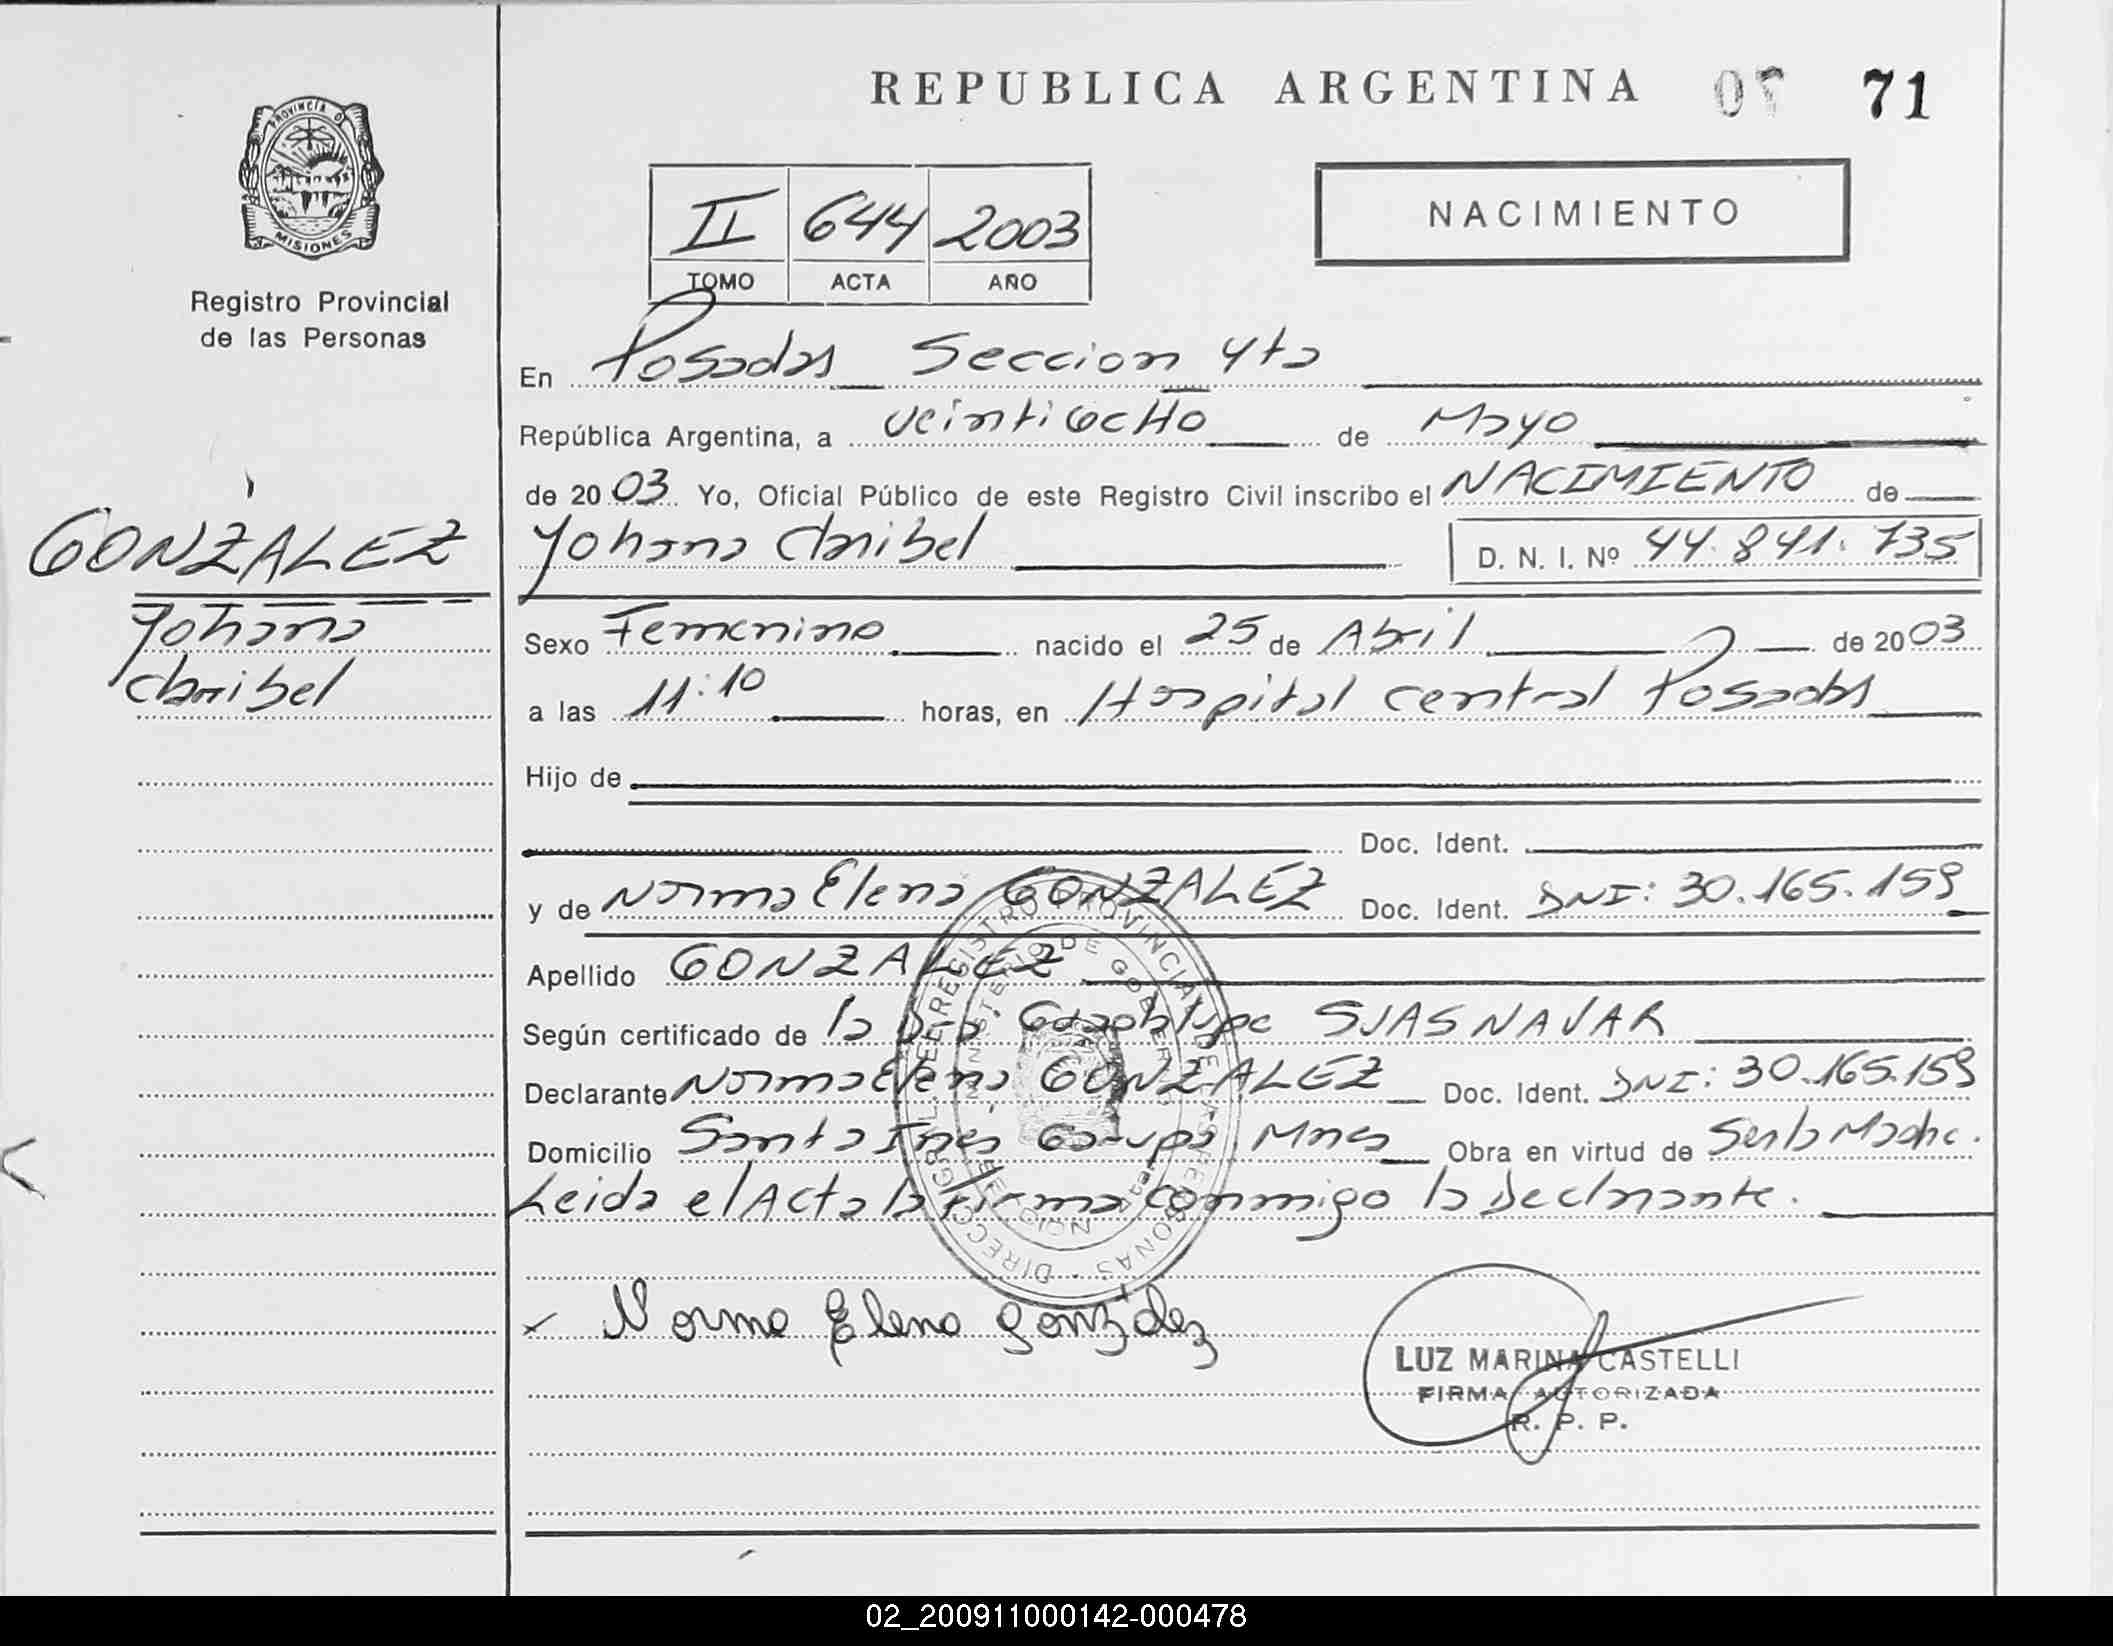 REPUBLICA ARGENTINA 71
PROVINCIA D
MISIONES
Registro Provincial
de las Personas
II 644 2003
TOMO ACTA AÑO
NACIMIENTO
En Posadas Seccion 4ta
República Argentina, a veintiocHo de Mayo
de 2003 Yo, Oficial Público de este Registro Civil inscribo el NACIMIENTO de
GONZALEZ
Yohana Claribel
Yohana Claribel D. N. I. Nº 44.841.735
Sexo Femenino nacido el 25 de Abril de 2003
a las 11:10 horas, en Hospital central Posadas
Hijo de
Doc. Ident.
y de Norma Elena GONZALEZ Doc. Ident. DNI: 30.165.159
Apellido GONZALEZ
Según certificado de la Dra. Guadalupe
Declarante Norma Elena GONZALEZ Doc. Ident. DNI: 30.165.159
Domicilio Santa Ines Garupa Mnes Obra en virtud de Ser la Madre.
Leida el Acta la Firma conmigo la Declarante.
DIRECC. GRAL. DEL REGISTRO PROVINCIAL DE LAS PERSONAS
MINISTERIO DE GOBIERNO
x Norma Elena González
LUZ MARINA CASTELLI
FIRMA AUTORIZADA
R. P. P.
02_200911000142-000478